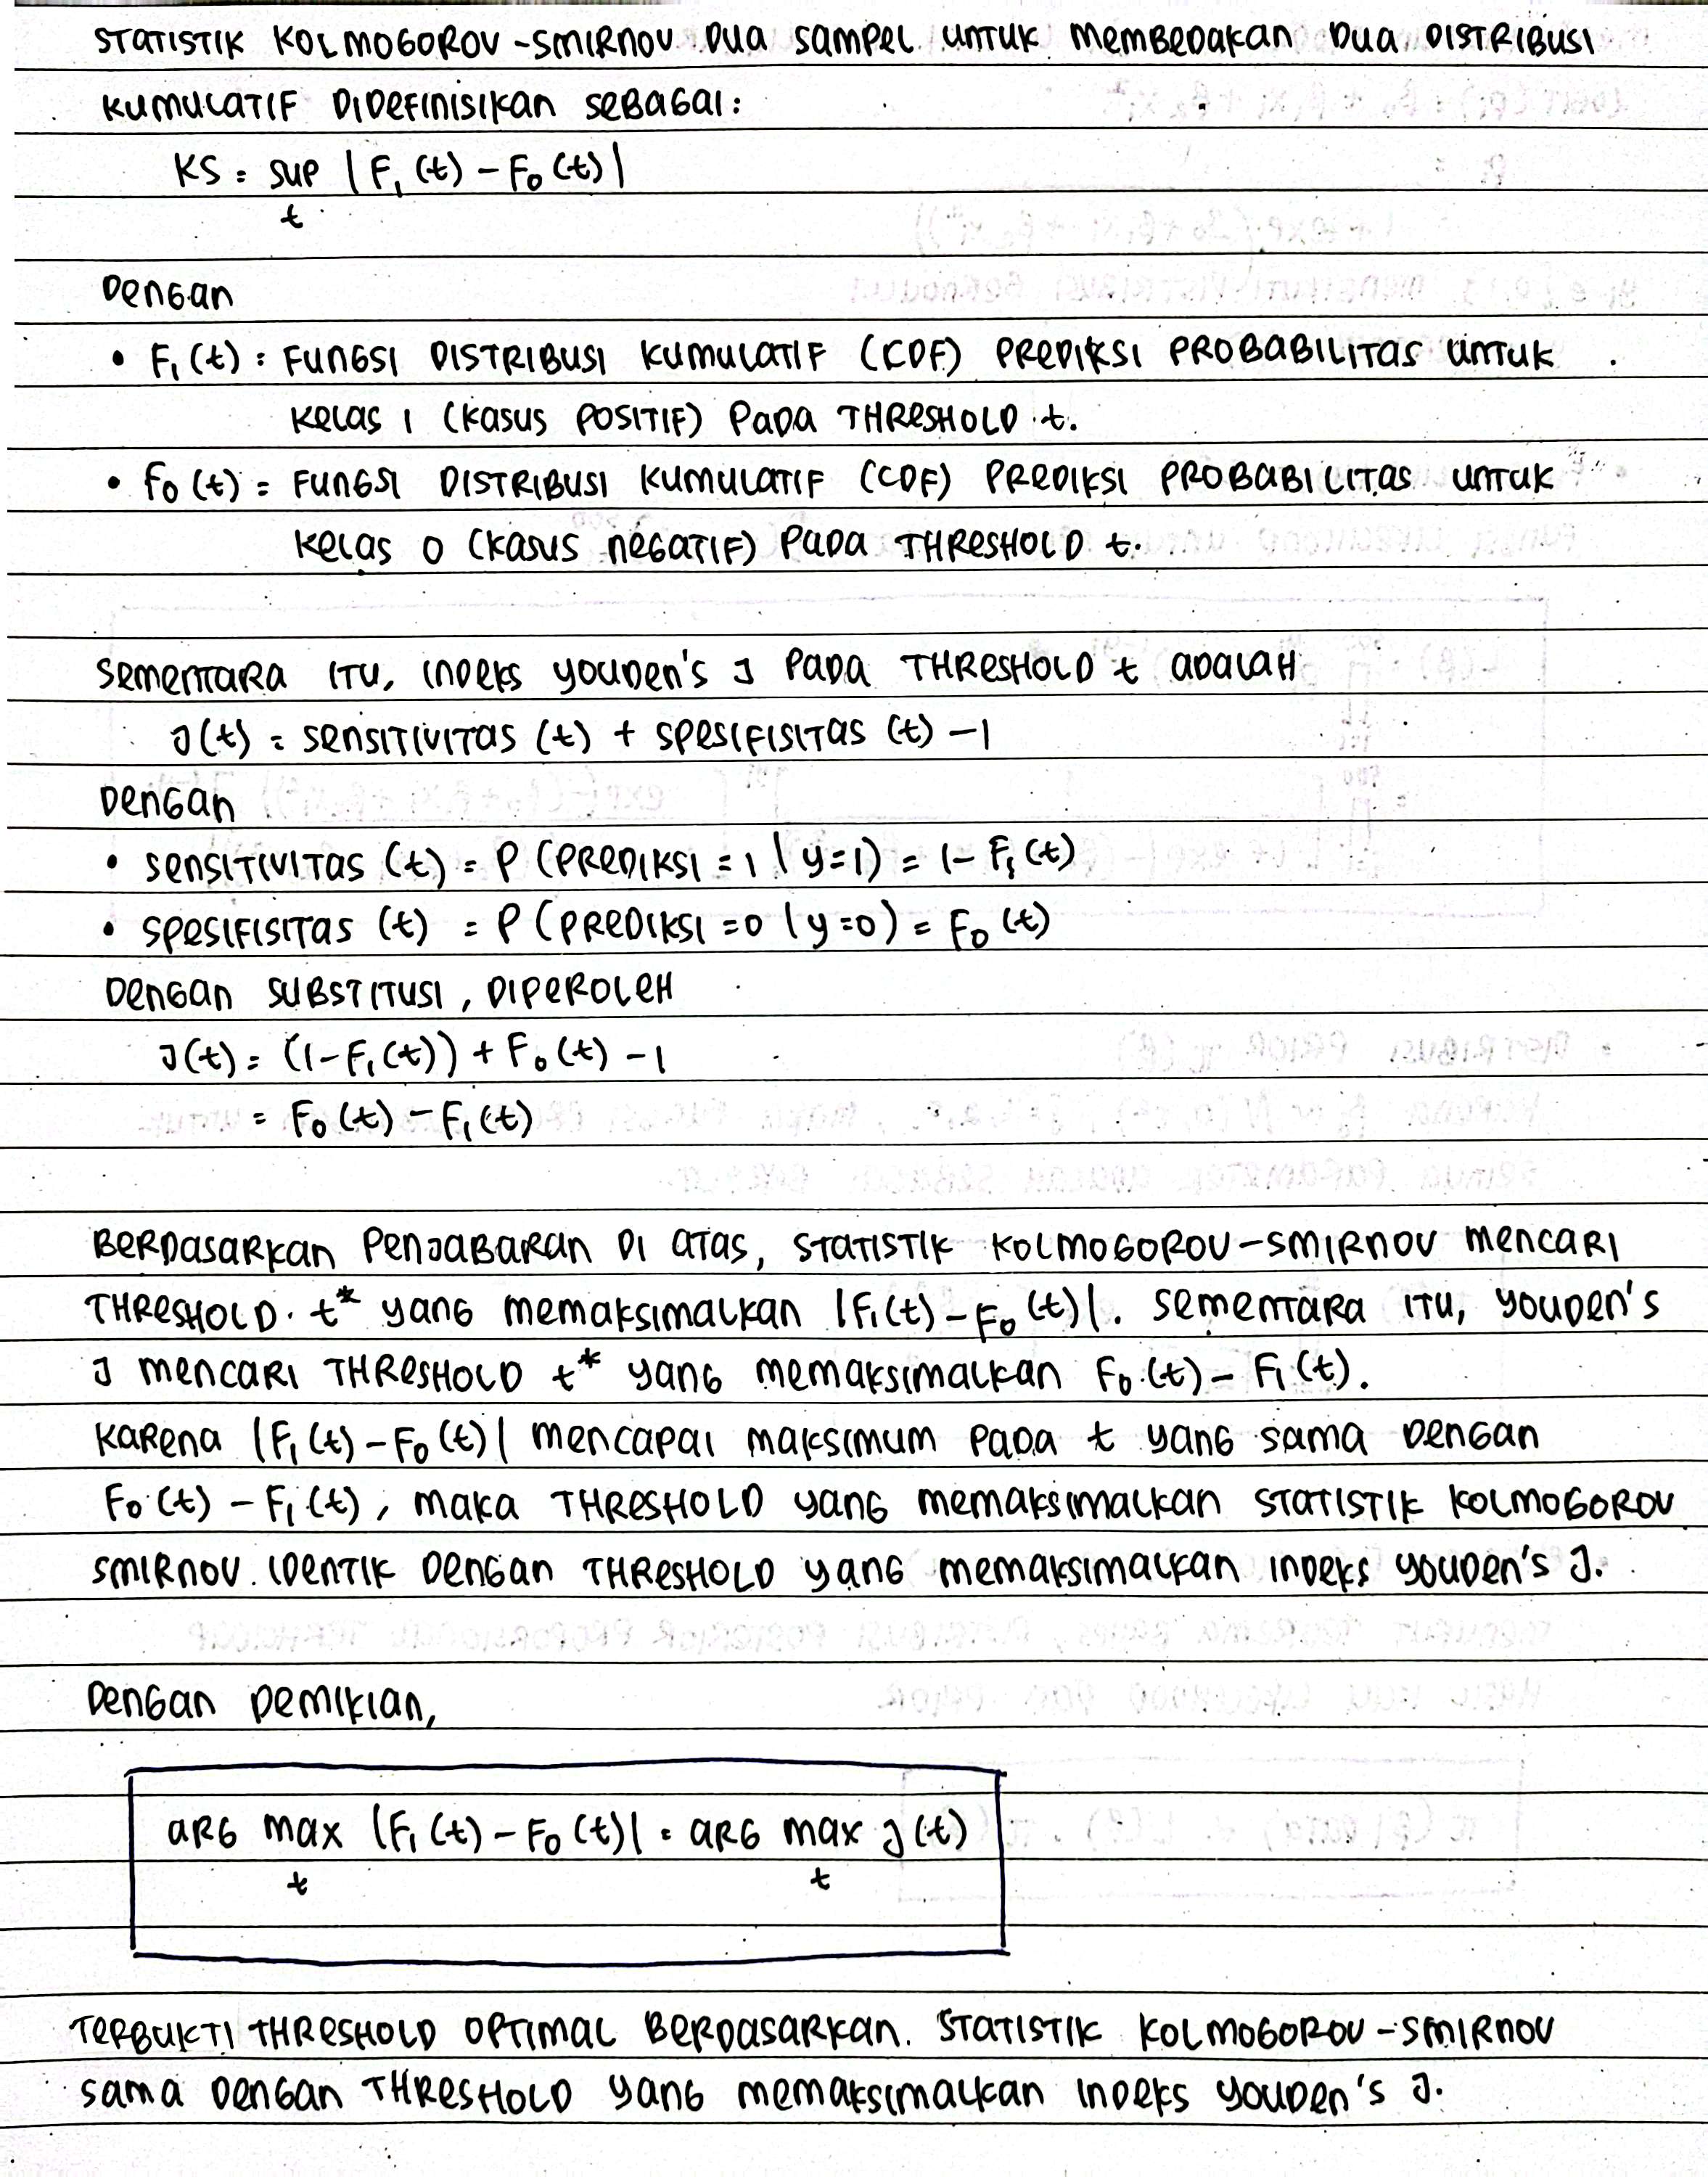 STATISTIK KOLMOGOROV-SMIRNOV DUA SAMPEL UNTUK MEMBEDAKAN DUA DISTRIBUSI
KUMULATIF DIDEFINISIKAN SEBAGAI:
KS = sup |F₁(t) - F₀(t)|
t
DENGAN
• F₁(t) = FUNGSI DISTRIBUSI KUMULATIF (CDF) PREDIKSI PROBABILITAS UNTUK
KELAS 1 (KASUS POSITIF) PADA THRESHOLD t.
• F₀(t) = FUNGSI DISTRIBUSI KUMULATIF (CDF) PREDIKSI PROBABILITAS UNTUK
KELAS 0 (KASUS NEGATIF) PADA THRESHOLD t.
SEMENTARA ITU, INDEKS YOUDEN'S J PADA THRESHOLD t ADALAH
J(t) = SENSITIVITAS (t) + SPESIFISITAS (t) - 1
DENGAN
• SENSITIVITAS (t) = P (PREDIKSI = 1 | y=1) = 1 - F₁(t)
• SPESIFISITAS (t) = P (PREDIKSI = 0 | y=0) = F₀(t)
DENGAN SUBSTITUSI, DIPEROLEH
J(t) = (1 - F₁(t)) + F₀(t) - 1
= F₀(t) - F₁(t)
BERDASARKAN PENJABARAN DI ATAS, STATISTIK KOLMOGOROV-SMIRNOV MENCARI
THRESHOLD t* YANG MEMAKSIMALKAN |F₁(t) - F₀(t)|. SEMENTARA ITU, YOUDEN'S
J MENCARI THRESHOLD t* YANG MEMAKSIMALKAN F₀(t) - F₁(t).
KARENA |F₁(t) - F₀(t)| MENCAPAI MAKSIMUM PADA t YANG SAMA DENGAN
F₀(t) - F₁(t), MAKA THRESHOLD YANG MEMAKSIMALKAN STATISTIK KOLMOGOROV
SMIRNOV IDENTIK DENGAN THRESHOLD YANG MEMAKSIMALKAN INDEKS YOUDEN'S J.
DENGAN DEMIKIAN,
ARG MAX |F₁(t) - F₀(t)| = ARG MAX J(t)
t t
TERBUKTI THRESHOLD OPTIMAL BERDASARKAN STATISTIK KOLMOGOROV-SMIRNOV
SAMA DENGAN THRESHOLD YANG MEMAKSIMALKAN INDEKS YOUDEN'S J.